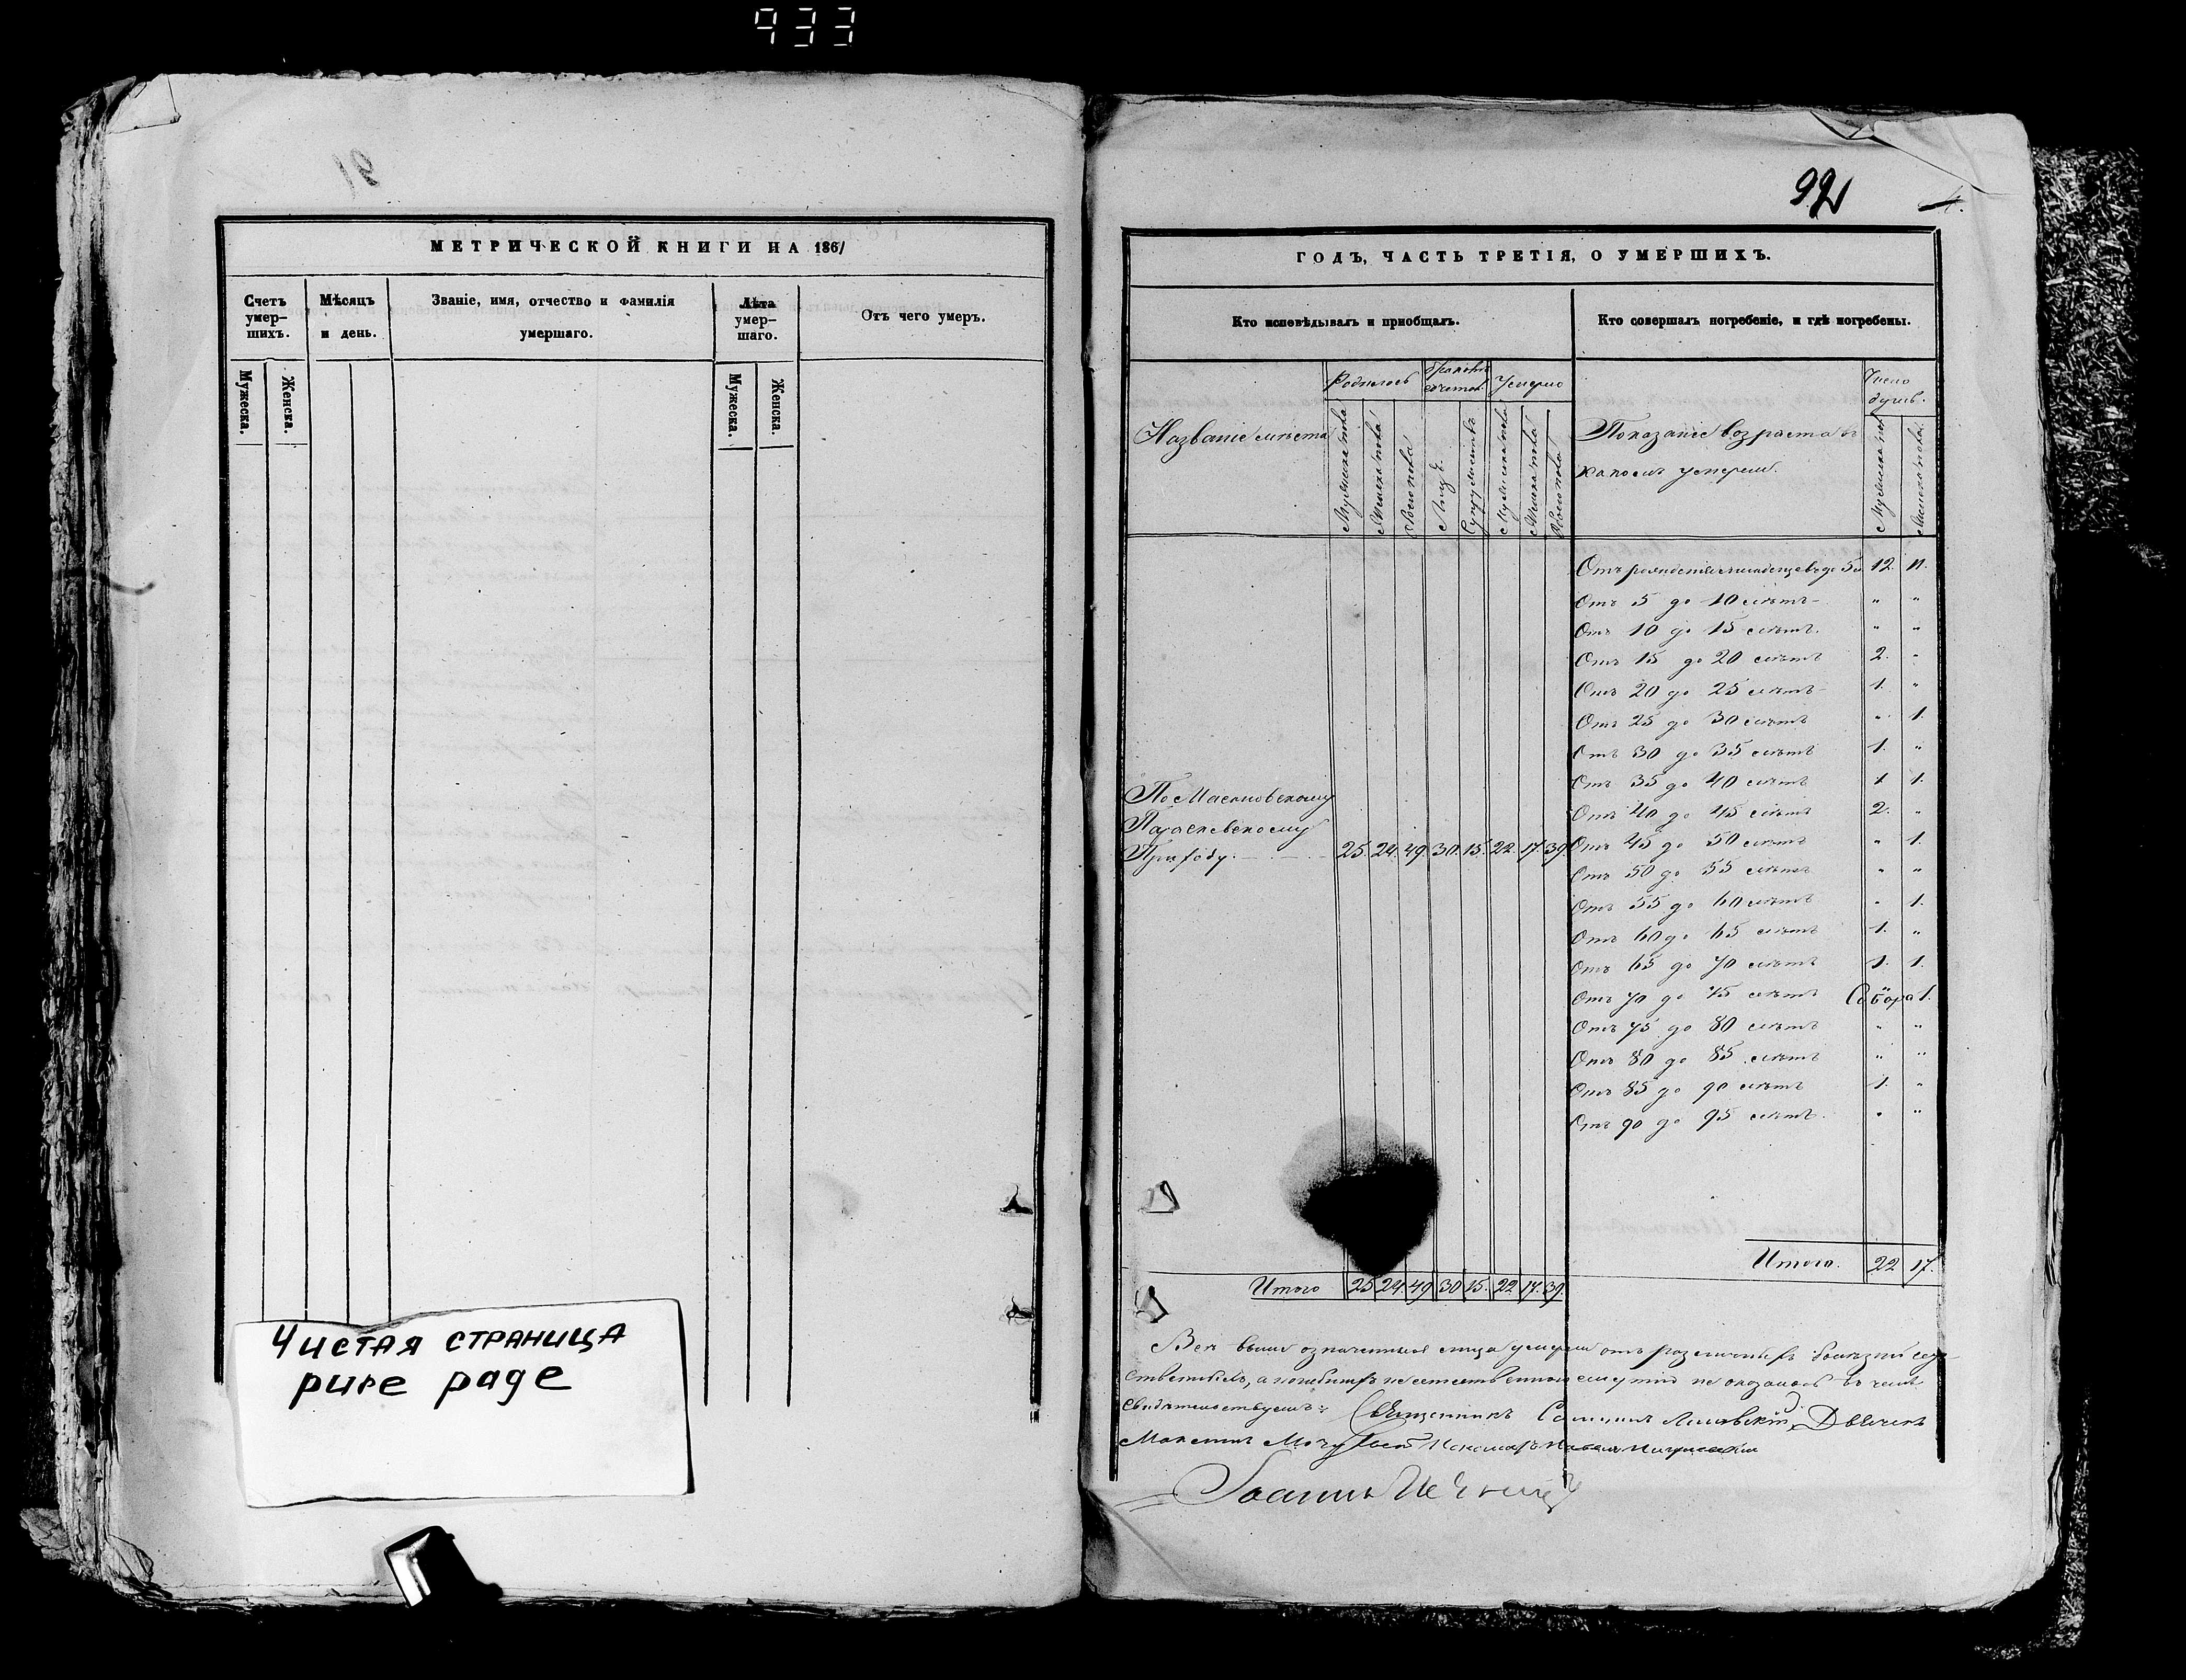 933
91
МЕТРИЧЕСКОЙ КНИГИ НА 1861
Счетъ умер- шихъ.
Мѣсяцъ и день.
Званіе, имя, отчество и фамилія умершаго.
Лѣта умер- шаго.
Отъ чего умеръ.
Мужеска.
Женска.
Мужеска.
Женска.
Чистая страница
pure page
92
ГОДЪ, ЧАСТЬ ТРЕТІЯ, О УМЕРШИХЪ.
Кто исповѣдывалъ и пріобщалъ.
Кто совершалъ погребеніе, и гдѣ погребены.
Названіе мѣста
Родилось
Умерло
Мужеска пола
Женска пола
Обоего пола
Лицъ.
Супружествъ
Мужеска пола
Женска пола
Обоего пола
Показаніе возраста въ
какомъ умерли.
Число душъ.
Мужеска пол
Женска пола.
Отъ рожденія младенцевъ до 5 12. 11.
Отъ 5 до 10 лѣтъ - " "
Отъ 10 до 15 лѣтъ. " "
Отъ 15 до 20 лѣтъ 2. "
Отъ 20 до 25 лѣтъ - 1. "
Отъ 25 до 30 лѣтъ " 1.
Отъ 30 до 35 лѣтъ 1. "
Отъ 35 до 40 лѣтъ 1 1.
Отъ 40 до 45 лѣтъ 2. "
Отъ 45 до 50 лѣтъ " 1.
Отъ 50 до 55 лѣтъ " "
Отъ 55 до 60 лѣтъ " 1.
Отъ 60 до 65 лѣтъ 1. "
Отъ 65 до 70 лѣтъ 1. 1.
Отъ 70 до 75 лѣтъ " 1.
Отъ 75 до 80 лѣтъ " "
Отъ 80 до 85 лѣтъ " "
Отъ 85 до 90 лѣтъ 1. "
Отъ 90 до 95 лѣтъ. " "
По
Параскевскому
Приходу. 25. 24. 49. 30. 15. 22. 17. 39.
Итого. 22 17.
Итого 25 24. 49 30 15. 22 17. 39.
Всѣ выше означенныя лица умерли отъ различныхъ болѣзней
а погибшихъ неестественною смертію не оказалось въ чемъ
свидѣтельствуемъ: Священникъ
Іоаннъ